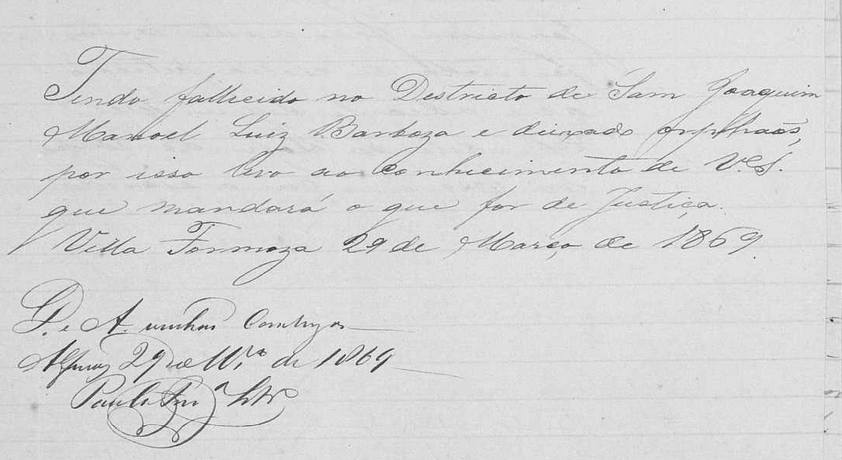 Tendo fallecido no Destricto de Sam Joaquim
Manoel Luiz Barboza e deixado orphaõs,
por isso levo ao conhecimento de V.S.
que mandará o que for de Justiça.
Villa Formoza 29 de Março de 1869.
D. e A. venhão Conclusos
29 de M.ço de 1869
Paula